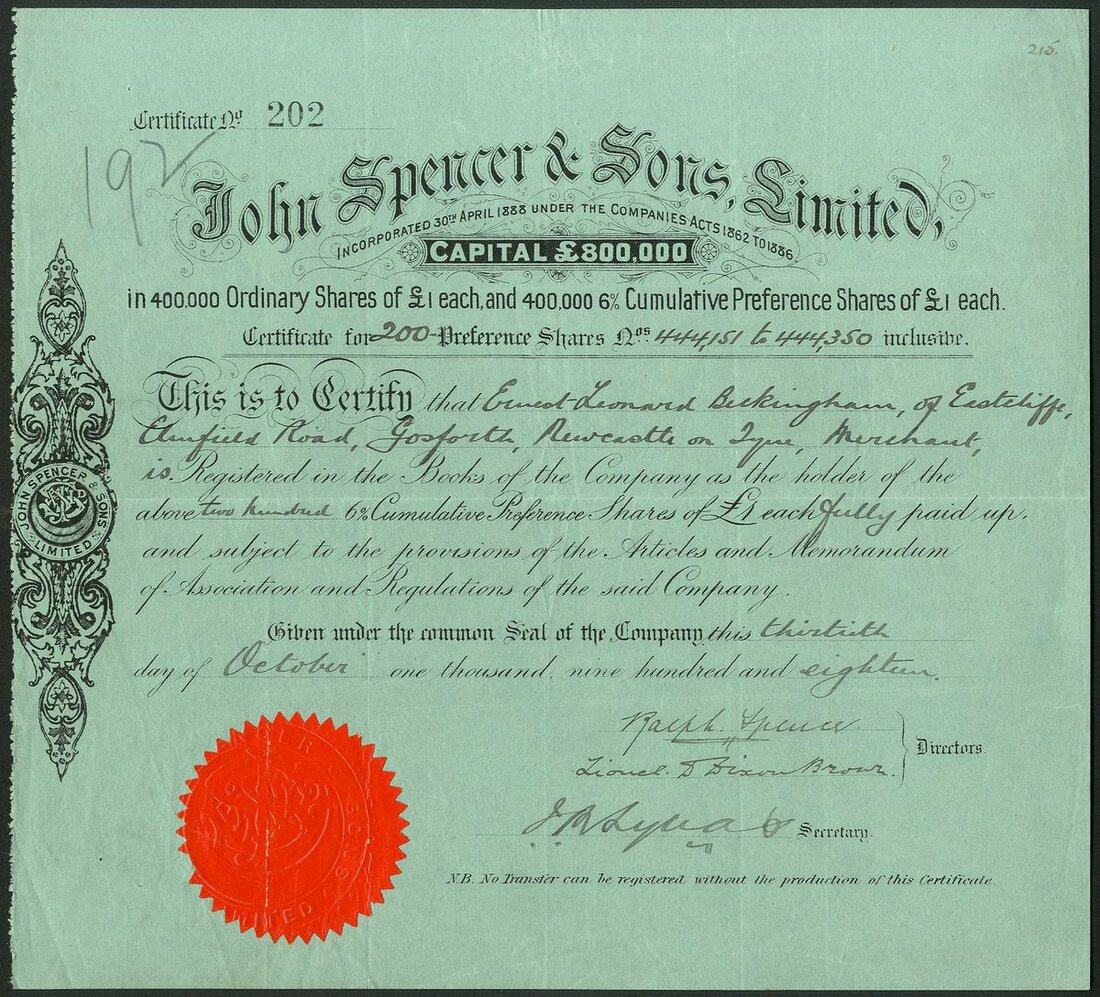 215.
Certificate Nº 202
192
John Spencer & Sons, Limited,
INCORPORATED 30TH APRIL 1888 UNDER THE COMPANIES ACTS 1862 TO 1886.
CAPITAL £800,000
in 400.000 Ordinary Shares of £1 each, and 400,000 6% Cumulative Preference Shares of £1 each.
Certificate for 200 Preference Shares Nos 444,151 to 444,350 inclusive.
This is to Certify that Ernest Leonard Beckingham, of Eastcliffe,
Elmfield Road, Gosforth, Newcastle on Tyne, Merchant,
is Registered in the Books of the Company as the holder of the
above two hundred 6% Cumulative Preference Shares of £1 each fully paid up.
and subject to the provisions of the Articles and Memorandum
of Association and Regulations of the said Company.
Given under the common Seal of the Company this thirtieth
day of October one thousand, nine hundred and eighteen.
Ralph Spencer
Lionel D Dixon Brown.
Directors.
Secretary.
N.B. No Transfer can be registered without the production of this Certificate.
JOHN SPENCER & SONS
LIMITED
LIMITED